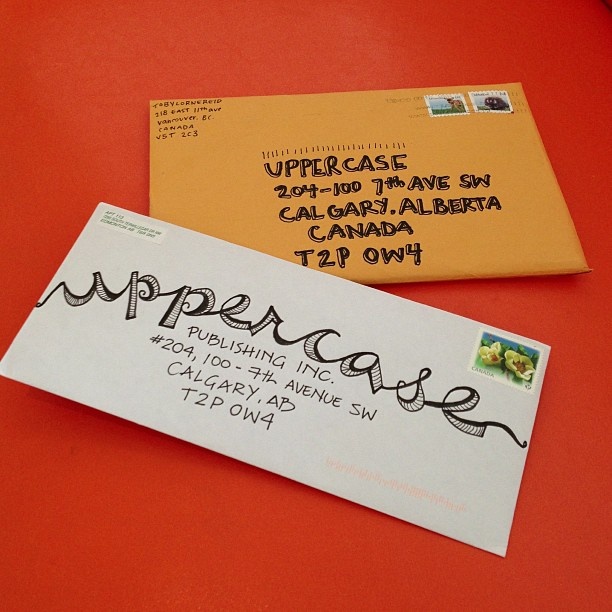 TOBYLORNEREID
218 EAST 11th AVE
VANCOUVER. BC.
CANADA
V5T. 2C3
UPPERCASE
204-100 7th AVE SW
CALGARY, ALBERTA
CANADA
T2P 0W4
uppercase
PUBLISHING INC.
#204, 100 - 7th AVENUE SW
CALGARY, AB
T2P 0W4
CANADA